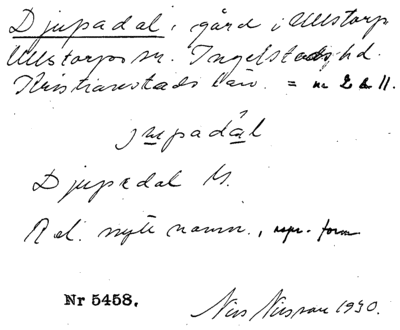 Djupadal, gård i Ullstorp
Ullstorps sn. Ingelstads hd.
Kristianstads län. = nr 2 & 11.
jupadal
Djupadal
Rel. nytt namn., form
Nr 5458.
Nils Nilsson 1930.